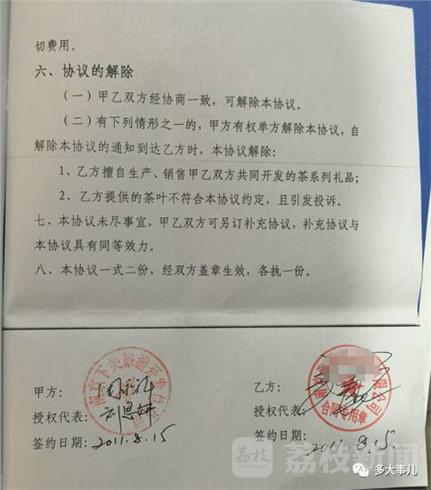 切费用。
六、协议的解除
（一）甲乙双方经协商一致，可解除本协议。
（二）有下列情形之一的，甲方有权单方解除本协议，自
解除本协议的通知到达乙方时，本协议解除：
1、乙方擅自生产、销售甲乙双方共同开发的茶系列礼品；
2、乙方提供的茶叶不符合本协议约定，且引发投诉。
七、本协议未尽事宜，甲乙双方可另订补充协议，补充协议与
本协议具有同等效力。
八、本协议一式二份，经双方盖章生效，各执一份。
甲方：
授权代表：
签约日期：2011.8.15
乙方：
授权代表：
签约日期：2011.8.15
限公司
合同专用章
荔枝
荔枝新闻
多大事儿